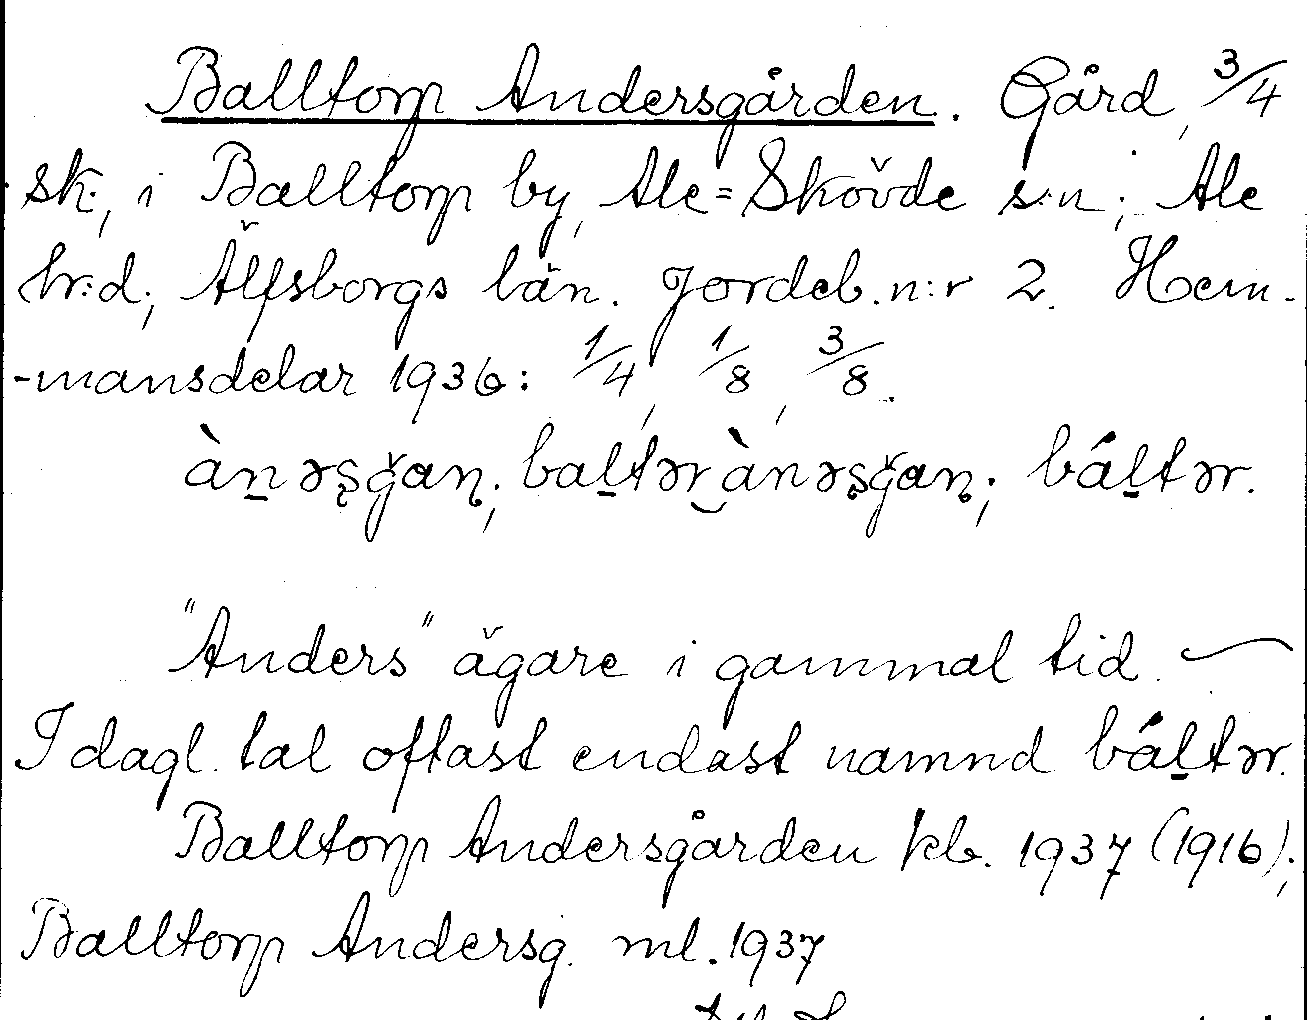 Balltorp Andersgården. Gård, 3/4
sk., i Balltorp by, Ale=Skövde s:n; Ale
hr:d; Älfsborgs län. Jordeb. n:r 2. Hem-
-mansdelar 1936: 1/4, 1/8, 3/8.
àn̠əşğaņ; bal̠tər‿ànəşğaņ; bál̠tər.
"Anders" ägare i gammal tid. —
I dagl. tal oftast endast namnd bál̠tər.
Balltorp Andersgården kb. 1937 (1916);
Balltorp Andersg. ml. 1937